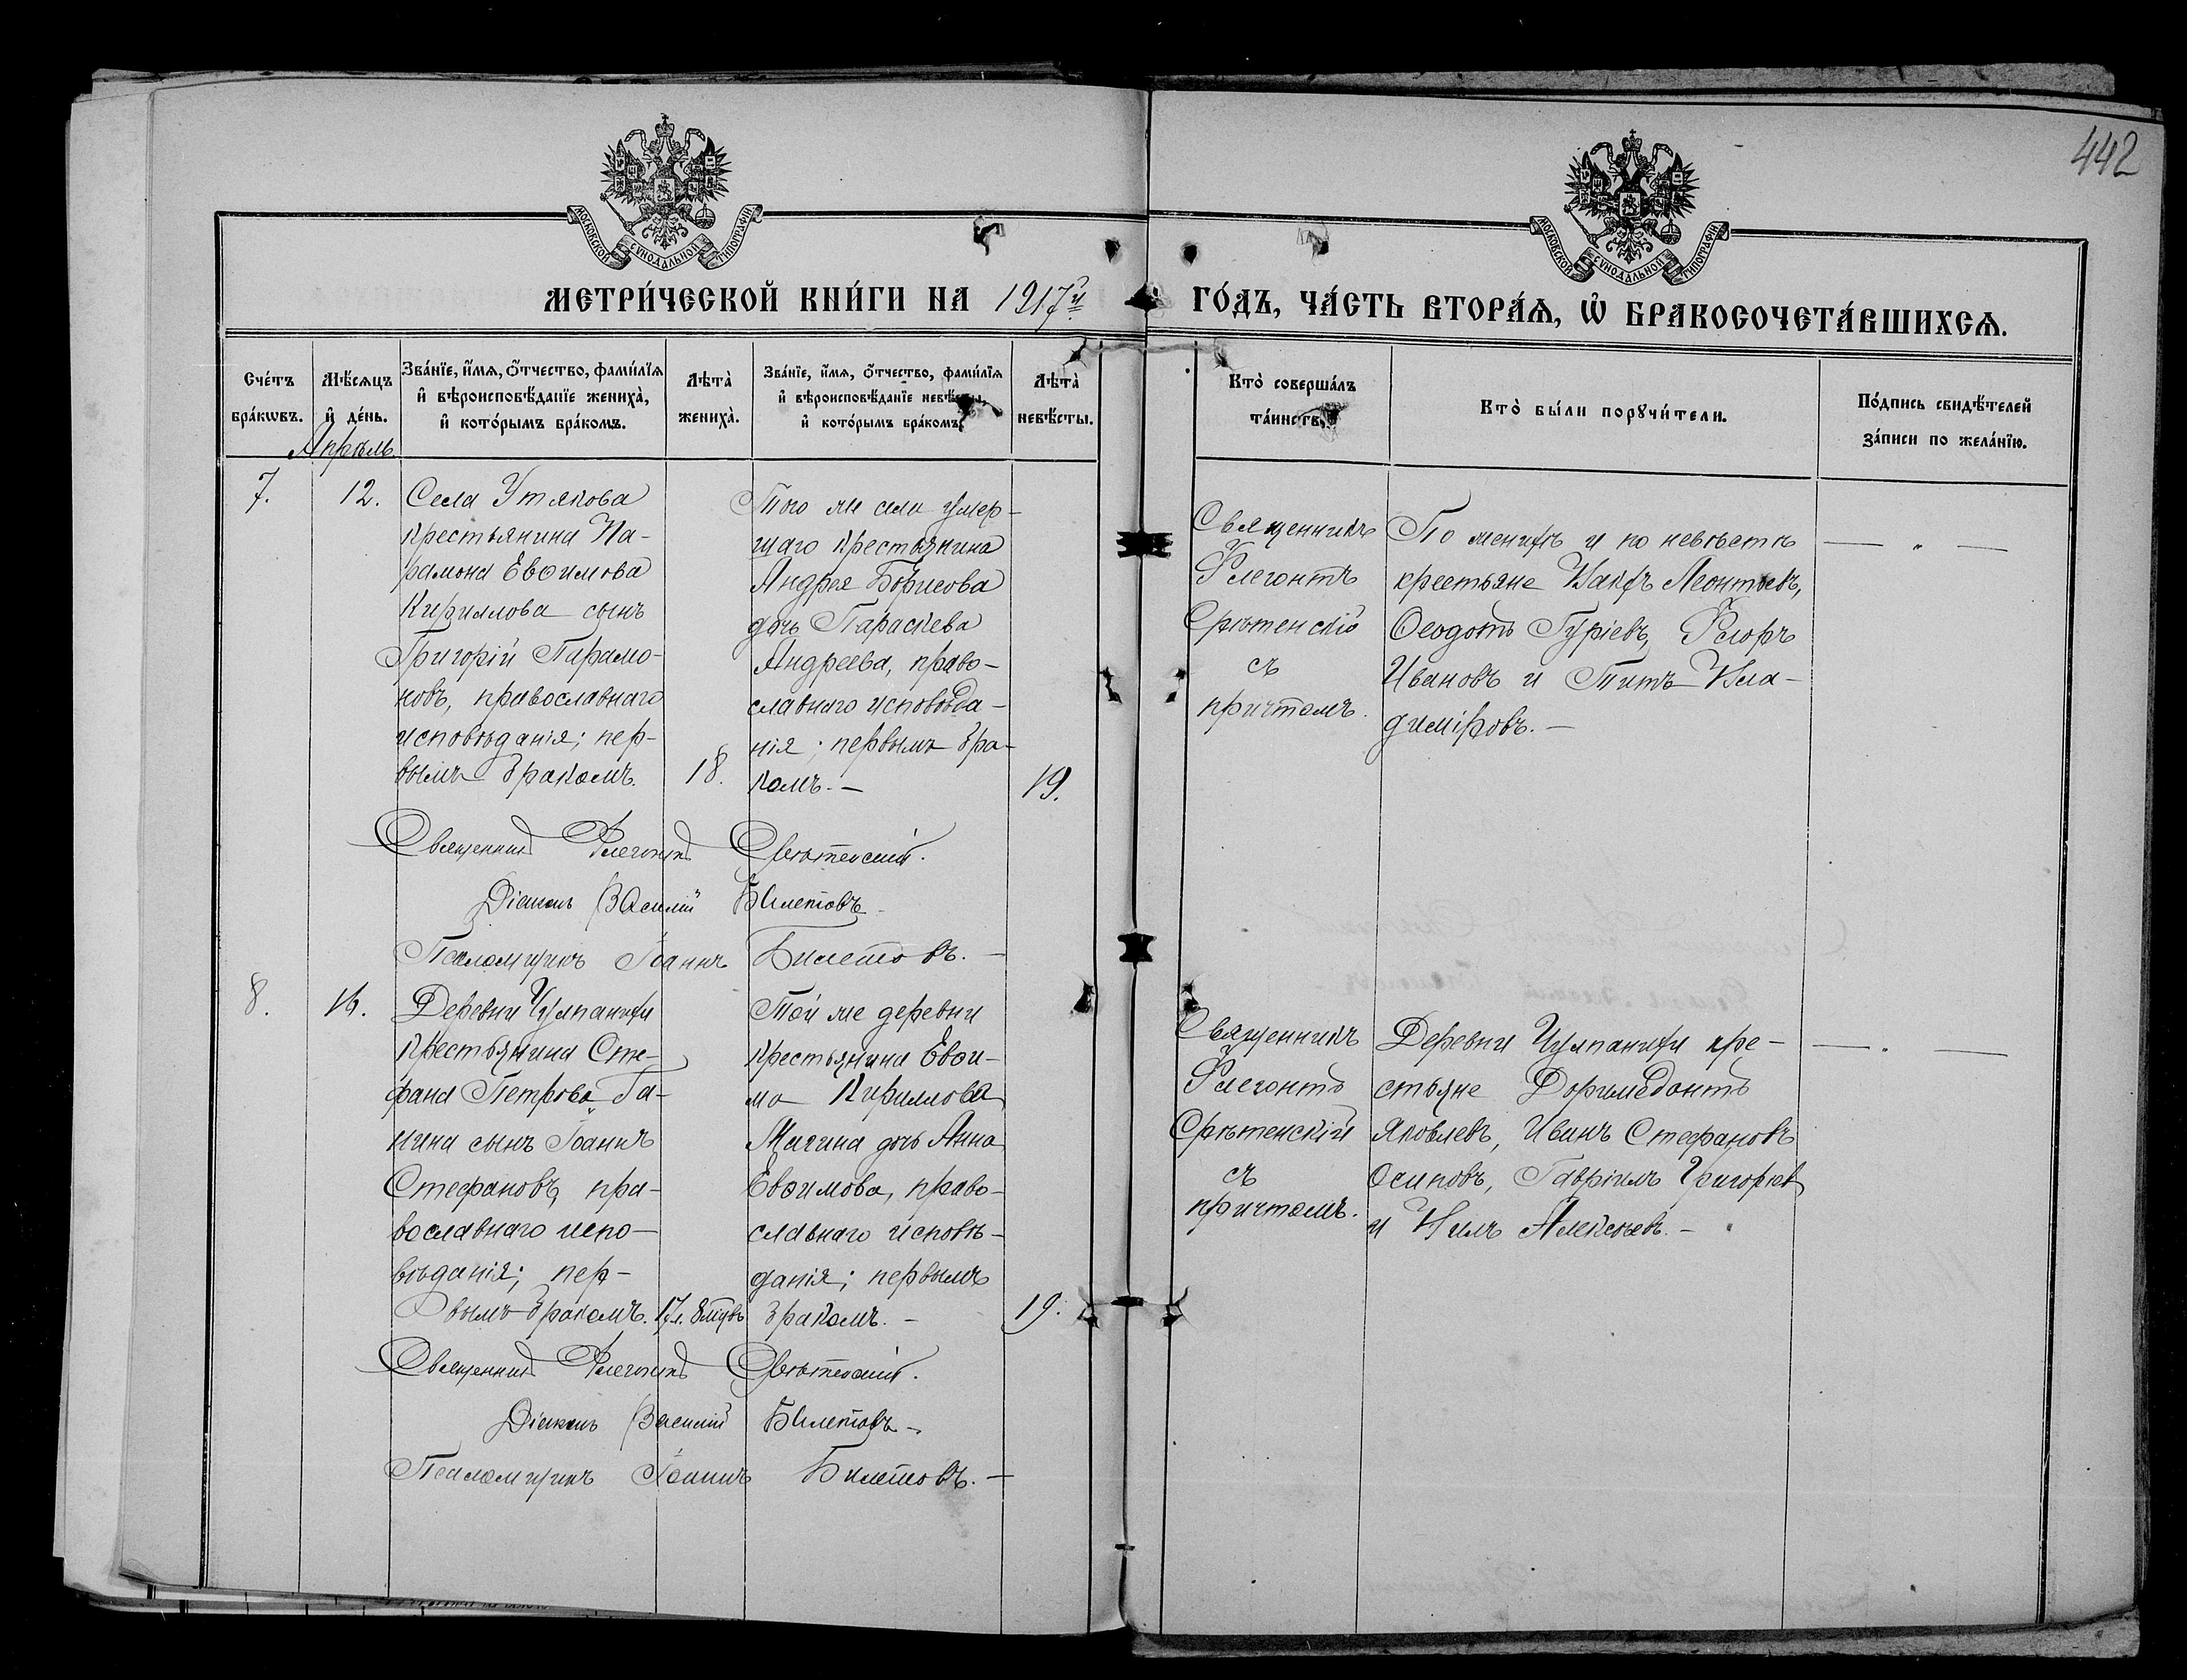 442
МОСКОВСКОЙ СѴНОДАЛЬНОЙ ТИПОГРАФІИ
МОСКОВСКОЙ СѴНОДАЛЬНОЙ ТИПОГРАФІИ
МЕТРИ́ЧЕСКОЙ КНИ́ГИ НА 1917й
ГО́ДЪ, ЧА́СТЬ ВТОРА́Ѧ, Ѡ҆ БРАКОСОЧЕТА́ВШИХСѦ.
Сче́тъ бра́кѡвъ.
Мѣ́сѧцъ и҆ де́нь.
Зва́нїе, и҆́мѧ, ѻ҆́тчество, фами́лїѧ
и҆ вѣроисповѣ́данїе жениха̀,
и҆ кото́рымъ бра́комъ.
Лѣта̀ жениха̀.
Зва́нїе, и҆́мѧ, ѻ҆́тчество, фами́лїѧ
и҆ вѣроисповѣ́данїе невѣ́сты,
и҆ кото́рымъ бра́комъ.
Лѣта̀ невѣ́сты.
Кто̀ соверша́лъ та́инство.
Кто̀ бы́ли порꙋчи́тели.
По́дпись свидѣ́телей за́писи по жела́нїю.
Апрѣль
7.
12.
Села Утякова
крестьянина Па-
рамона Евѳимова
Кириллова сынъ
Григорій Парамо-
новъ, православнаго
исповѣданія; пер-
вымъ бракомъ.
18.
Того же села умер-
шаго крестьянина
Андрея Борисова
дочь Параскева
Андреева, право-
славнаго исповѣда-
нія; первымъ бра-
комъ. —
19.
Священникъ
Флегонтъ
Срѣтенскій
съ
причтомъ.
По женихѣ и по невѣстѣ
крестьяне Іаковъ Леонтьевъ,
Ѳеодотъ Гуріевъ, Флоръ
Ивановъ и Титъ Вла-
димировъ. —
— „ —
Священникъ Флегонтъ Срѣтенскій.
Діаконъ Василій Билетовъ
Псаломщикъ Іоаннъ Билетовъ. —
8.
16.
Деревни Чулпанихи
крестьянина Сте-
фана Петрова Га-
нина сынъ Іоаннъ
Стефановъ, пра-
вославнаго испо-
вѣданія; пер-
вымъ бракомъ.
17 л. 8 мѣсвъ
Той же деревни
крестьянина Евѳи-
ма Кириллова
Мягина дочь Анна
Евѳимова, право-
славнаго исповѣ-
данія; первымъ
бракомъ. —
19.
Священникъ
Флегонтъ
Срѣтенскій
съ
причтомъ.
Деревни Чулпанихи кре-
стьяне Доримедонтъ
Яковлевъ, Иванъ Стефановъ
Осиповъ, Гавріилъ Григорьевъ
и Нилъ Алексѣевъ. —
— „ —
Священникъ Флегонтъ Срѣтенскій.
Діаконъ Василій Билетовъ
Псаломщикъ Іоаннъ Билетовъ. —